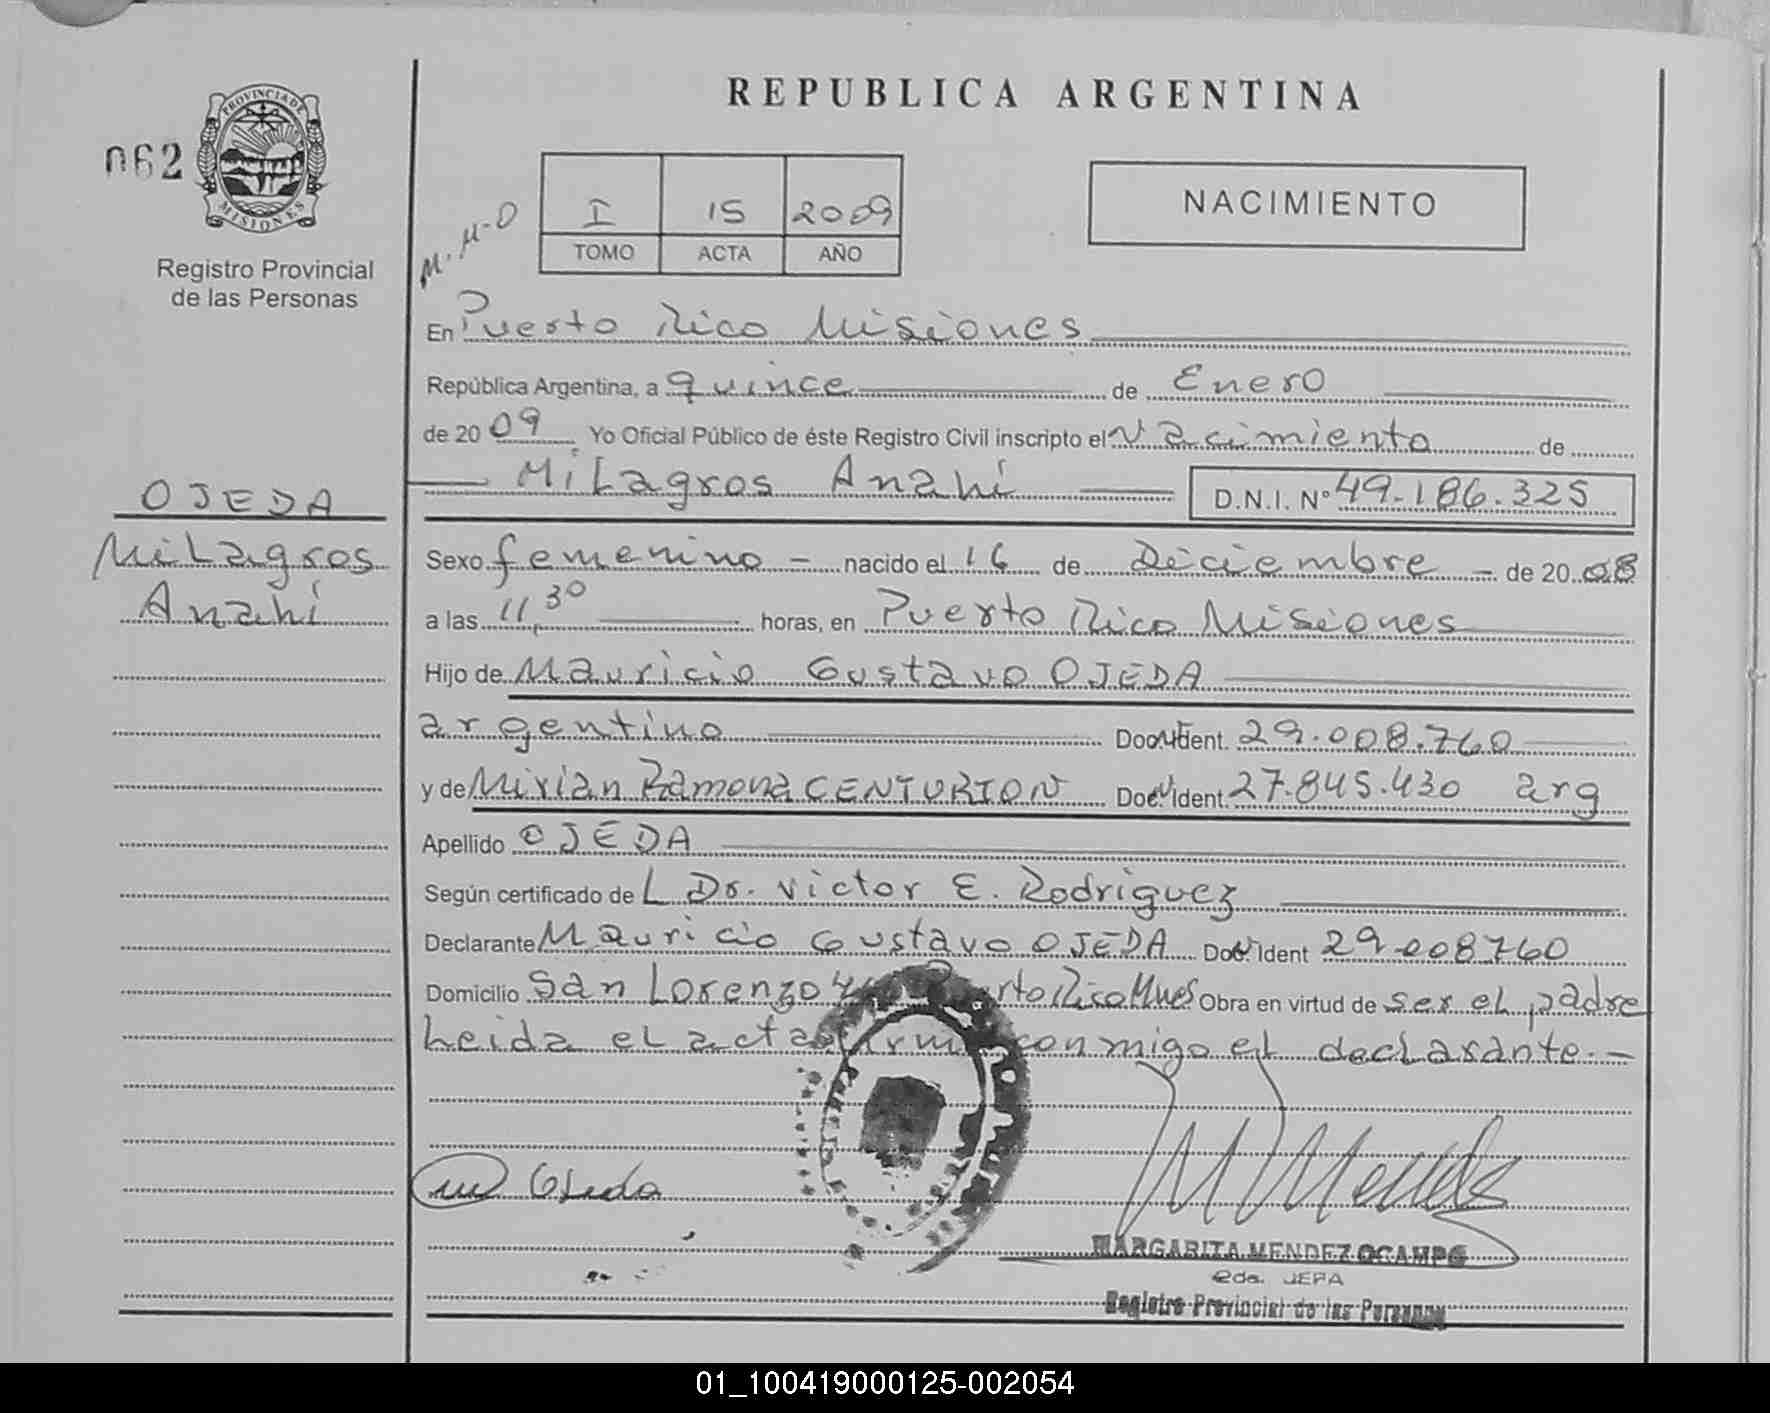 REPUBLICA ARGENTINA
062
PROVINCIA DE
MISIONES
Registro Provincial
de las Personas
M. M-O
I 15 2009
TOMO ACTA AÑO
NACIMIENTO
En Puerto Rico Misiones
República Argentina, a quince de Enero
de 2009 Yo Oficial Público de éste Registro Civil inscripto el Nacimiento de
Milagros Anahí D.N.I. Nº 49.186.325
OJEDA
Milagros
Anahí
Sexo femenino - nacido el 16 de Diciembre - de 2008
a las 11,30 horas, en Puerto Rico Misiones
Hijo de Mauricio Gustavo OJEDA
argentino Doc Ident. 29.008.760
y de Mirian Ramona CENTURION Doc Ident. 27.845.430 arg
Apellido OJEDA
Según certificado de L Dr. Victor E. Rodriguez
Declarante Mauricio Gustavo OJEDA Doc Ident 29.008760
Domicilio San Lorenzo Puerto Rico Mnes Obra en virtud de ser el padre
Leida el acta firma conmigo el declarante.-
Ojeda
M Mendez
MARGARITA MENDEZ OCAMPO
2da. JEFA
Registro Provincial de las Personas
01_100419000125-002054